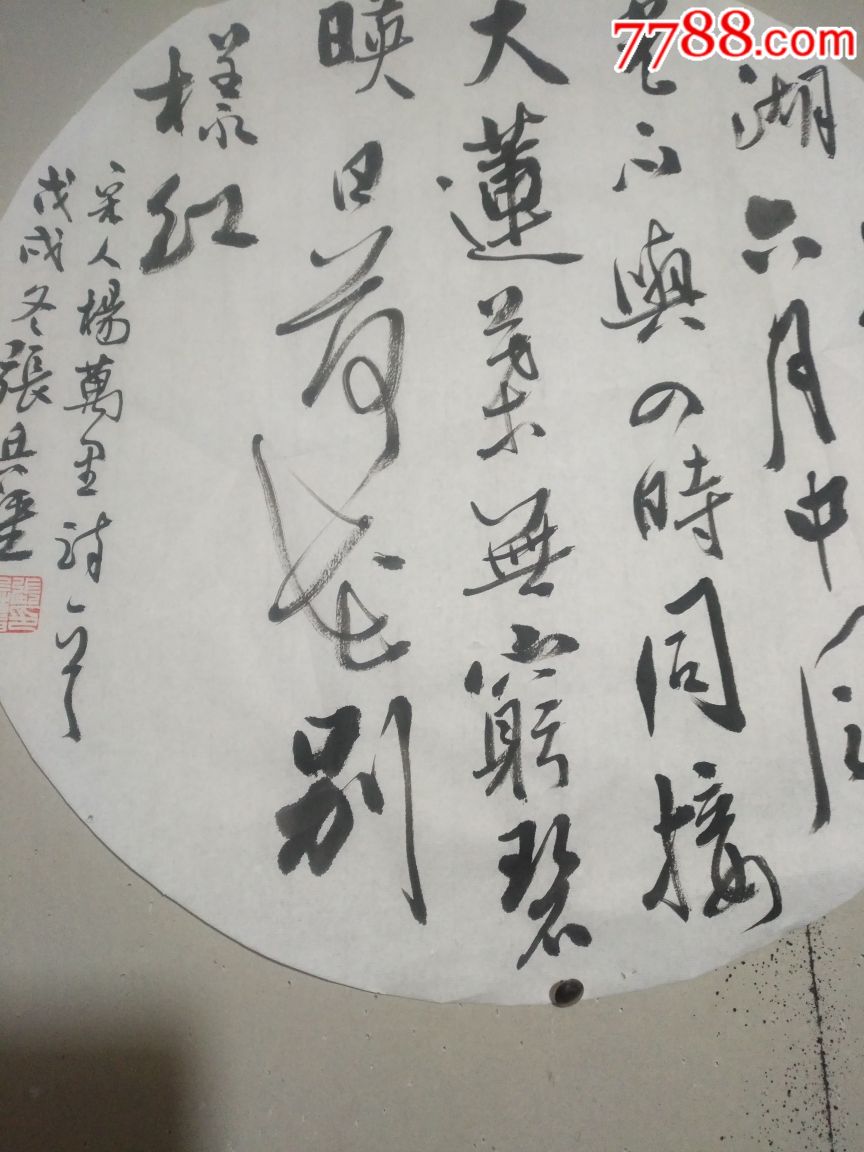 7788.com
湖六月中風
光不與四時同接
大蓮葉無窮碧
暎日荷花別
樣紅
宋人楊萬里詩一首
戊戌冬張兵